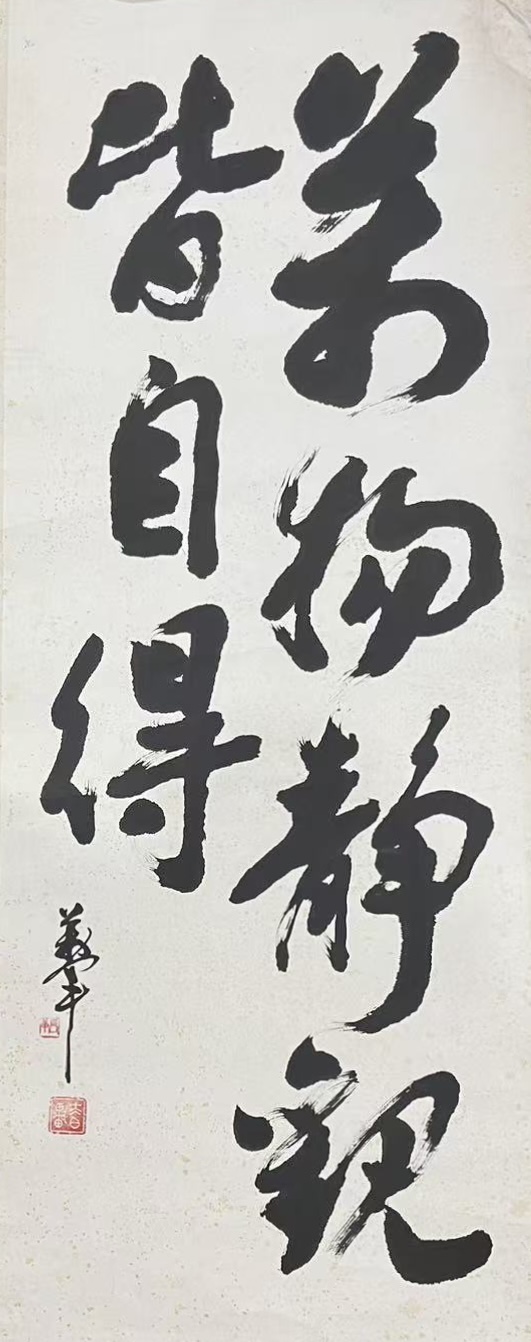 萬物静觀
皆自得